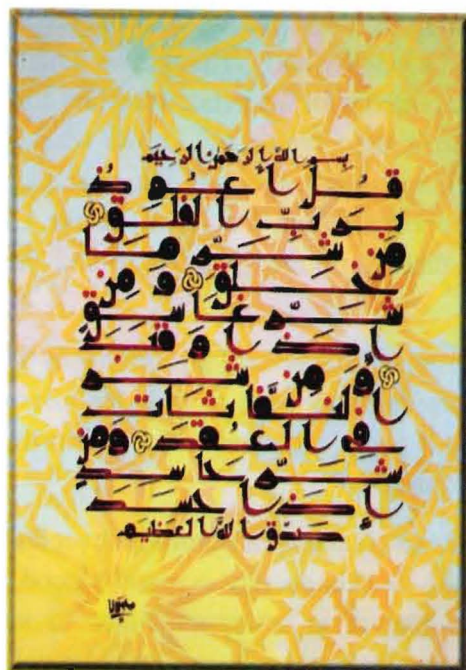 بسم الله الرحمن الرحيم
قل أعوذ
برب الفلق
من شر ما
خلق ومن
شر غاسق
إذا وقب
ومن شر
النفاثات
في العقد ومن
شر حاسد
إذا حسد
صدق الله العظيم